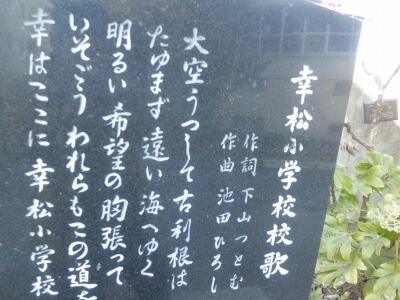 幸松小学校校歌
作詞 下山つとむ
作曲 池田ひろし
大空うつして古利根は
たゆまず 遠い 海へゆく
明るい 希望の 胸張って
いそごう われらもこの道を
幸はここに 幸松小学校